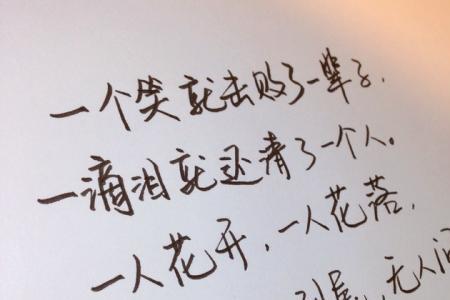 一个笑就击败了一辈子,
一滴泪就还清了一个人。
一人花开,一人花落,
无人问